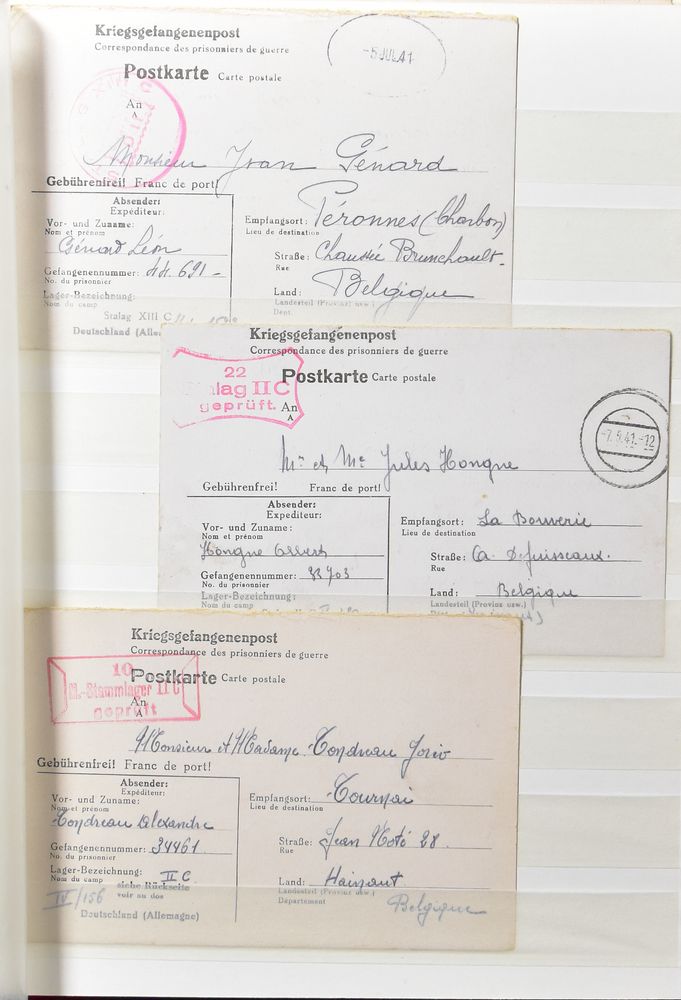 Kriegsgefangenenpost
Correspondance des prisonniers de guerre
-5 JUL 41
Postkarte Carte postale
An
A
Monsieur Jvan Génard
Gebührenfrei! Franc de port!
Absender:
Expéditeur:
Vor- und Zuname:
Nom et prénom
Génard Léon
Gefangenennummer: 44.691 -
No. du prisonnier
Lager-Bezeichnung:
Nom du camp
Stalag XIII C
Deutschland (Alle
Empfangsort: Péronnes (Charbon)
Lieu de destination
Straße: Chaussée Brunehault-
Rue
Land: Belgique
Landesteil (Provinz usw.)
Dept.
Kriegsgefangenenpost
Correspondance des prisonniers de guerre
22
Stalag II C
geprüft.
Postkarte Carte postale
An
A
-7.5.41.-12
Mr et Me Jules Hongne
Gebührenfrei! Franc de port!
Absender:
Expéditeur:
Vor- und Zuname:
Nom et prénom
Hongne Albert
Gefangenennummer:
No. du prisonnier
Lager-Bezeichnung:
Nom du camp
Empfangsort: La Bouverie
Lieu de destination
Straße: Ca. Defuisseaux.
Rue
Land: Belgique
Landesteil (Provinz usw.)
Kriegsgefangenenpost
Correspondance des prisonniers de guerre
10
M.-Stammlager II C
geprüft
Postkarte Carte postale
An
A
Monsieur et Madame Condreau
Gebührenfrei! Franc de port!
Absender:
Expéditeur:
Vor- und Zuname:
Nom et prénom
Condreau Alexandre
Gefangenennummer: 34461.
No. du prisonnier
Lager-Bezeichnung: II C
Nom du camp
siehe Rückseite
voir au dos
IV/156
Deutschland (Allemagne)
Empfangsort: Tournai
Lieu de destination
Straße: Jean Noté 28.
Rue
Land: Hainaut
Landesteil (Provinz usw.)
Département
Belgique